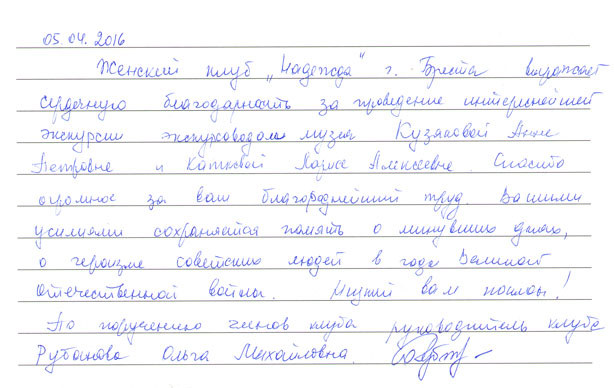 05.04.2016
Женский клуб „Надежда" г. Бреста выражает
сердечную благодарность за проведение интереснейшей
экскурсии экскурсоводам музея Кузяковой Анне
Петровне и Катковой Ларисе Алексеевне. Спасибо
огромное за ваш благороднейший труд. Вашими
усилиями сохраняется память о минувших днях,
о героизме советских людей в годы Великой
Отечественной войны. Низкий вам поклон!
По поручению членов клуба руководитель клуба
Рубанова Ольга Михайловна.